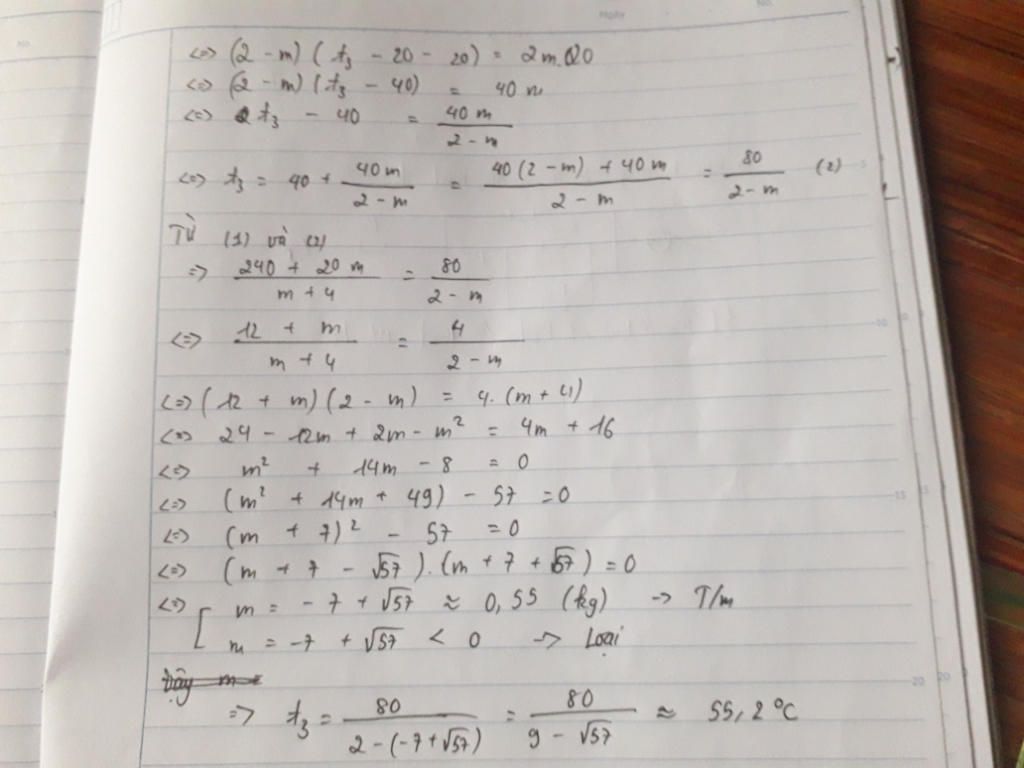 <=> (2 - m) ( t₃ - 20 - 20) = 2m.20
<=> (2 - m) (t₃ - 40) = 40 m
<=> t₃ - 40 = 40 m / (2 - m)
<=> t₃ = 40 + 40 m / (2 - m) = (40 (2 - m) + 40 m) / (2 - m) = 80 / (2 - m) (2)
Từ (1) và (2)
=> (240 + 20 m) / (m + 4) = 80 / (2 - m)
<=> (12 + m) / (m + 4) = 4 / (2 - m)
<=> (12 + m) (2 - m) = 4. (m + 4)
<=> 24 - 12m + 2m - m² = 4m + 16
<=> m² + 14m - 8 = 0
<=> (m² + 14m + 49) - 57 = 0
<=> (m + 7)² - 57 = 0
<=> (m + 7 - √57).(m + 7 + √57) = 0
<=> [ m = -7 + √57 ≈ 0,55 (kg) -> T/m
m = -7 + √57 < 0 -> Loại
Vậy m =
=> t₃ = 80 / (2 - (-7 + √57)) = 80 / (9 - √57) ≈ 55,2 °C